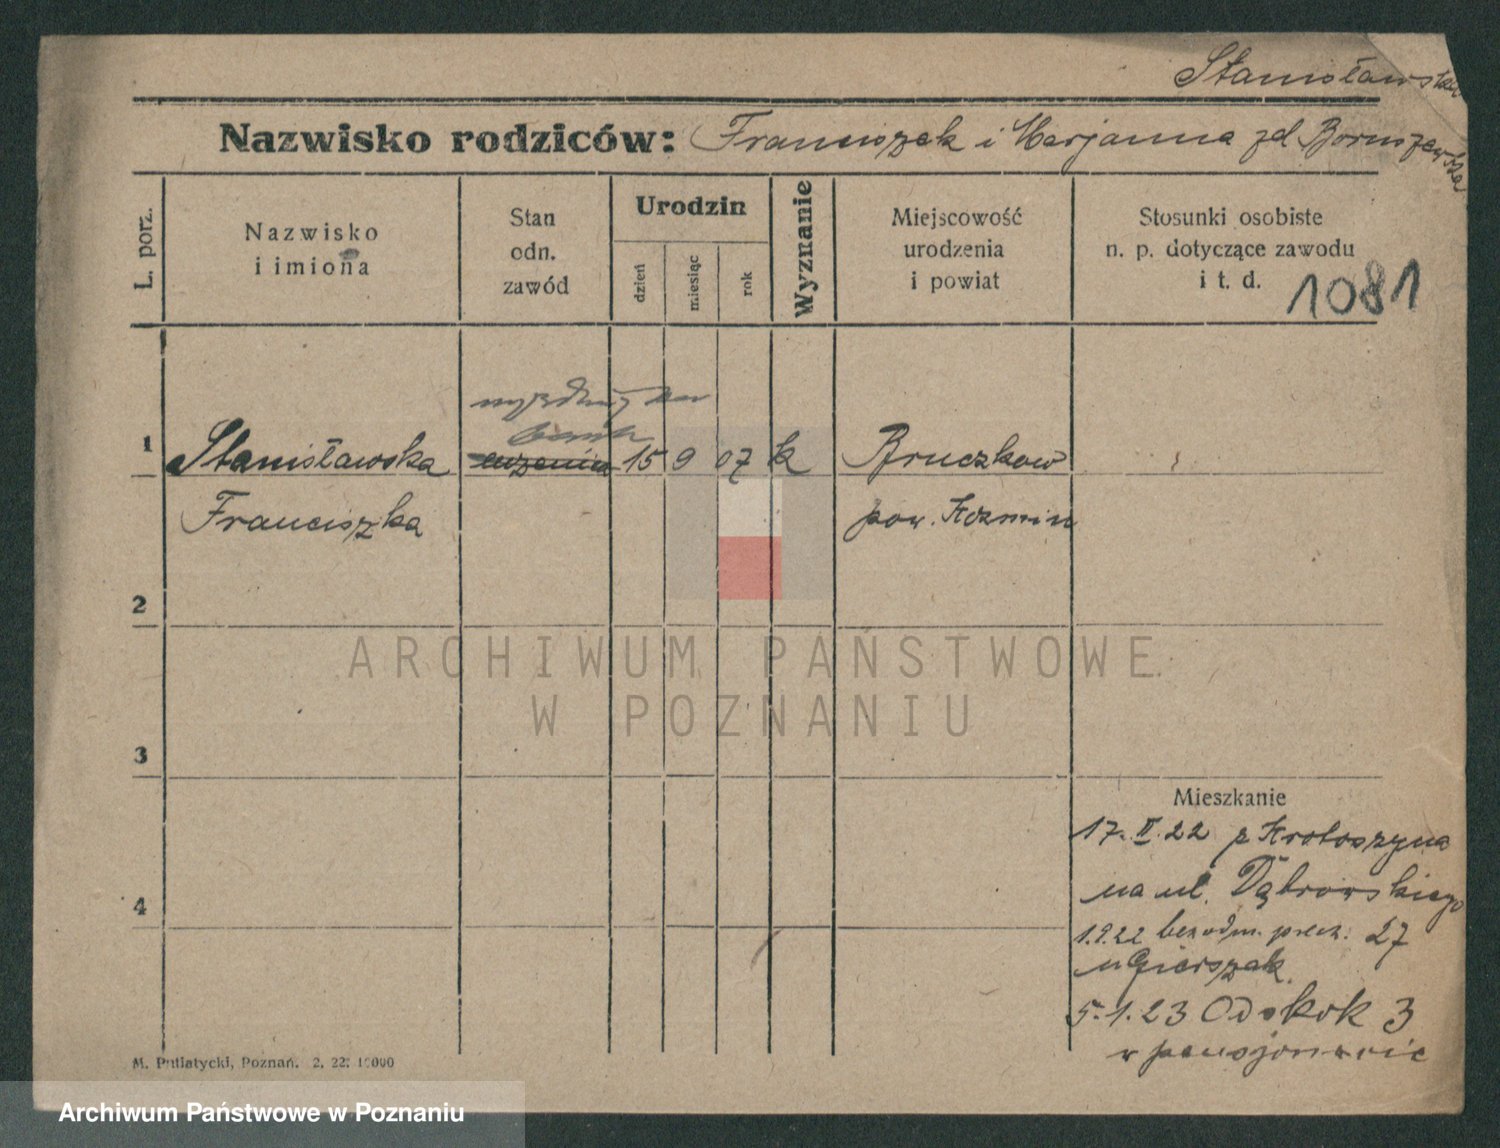 Stanisławska
Nazwisko rodziców: Franciszek i Marjanna zd Boruszewska
L. porz.
Nazwisko
i imiona
Stan
odn.
zawód
Urodzin
dzień
miesiąc
rok
Wyznanie
Miejscowość
urodzenia
i powiat
Stosunki osobiste
n. p. dotyczące zawodu
i t. d. 1081
1 Stanisławska uczenica 15 9 07 k Bruczkow
Franciszka pow. Kozmin
2
3
4
ARCHIWUM PAŃSTWOWE
W POZNANIU
Mieszkanie
17. II. 22 z Krotoszyna
na ul. Dąbrowskiego
1.9.22 bez odm. 27
u Gierszak.
5.1.23 Ostrorok 3
w pensjonacie
M. Putiatycki, Poznań. 2. 22. 10000
Archiwum Państwowe w Poznaniu